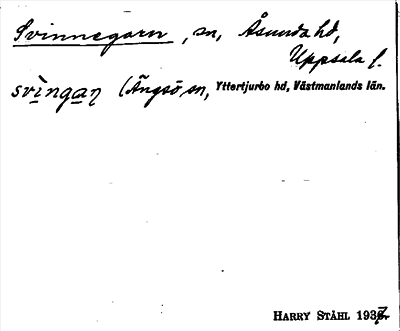 Svinnegarn, sn, Åsunda hd,
Uppsala l.
svìngaη (Ängsö sn, Yttertjurbo hd, Västmanlands län.
HARRY STÅHL 1937